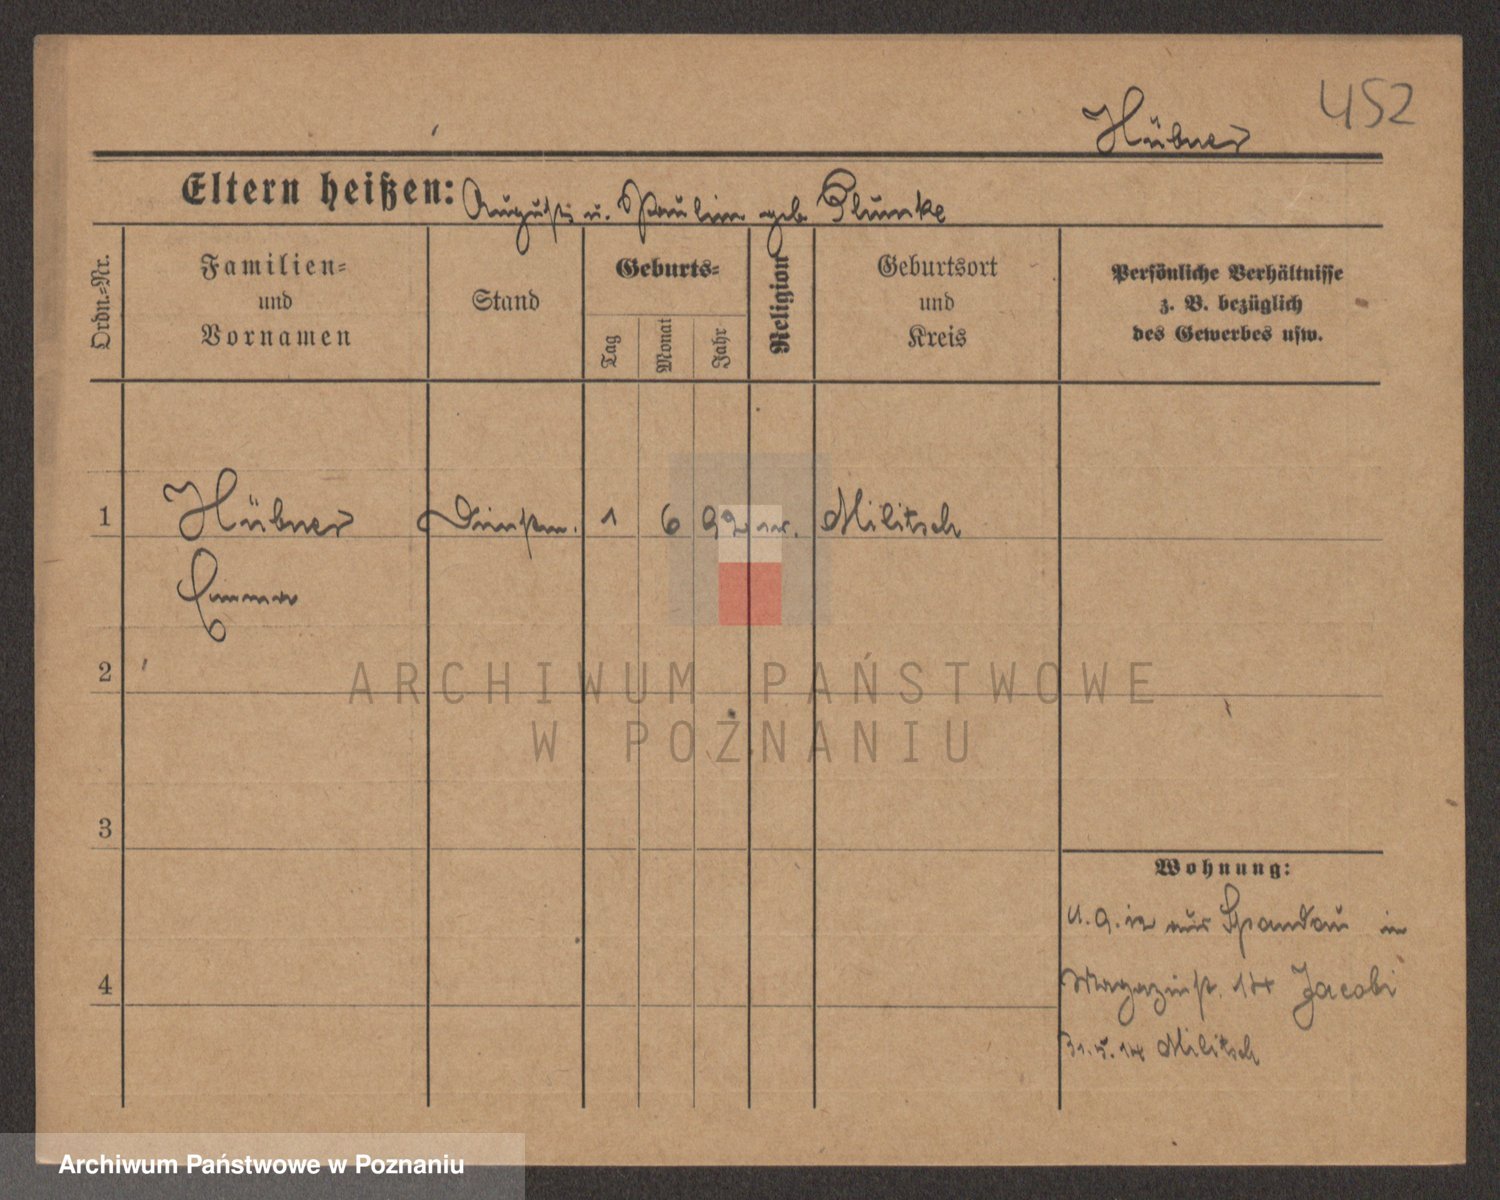 452
Hübner
Eltern heißen: August u. Paulin geb. Plunke
Ordn.-Nr.
Familien-
und
Vornamen
Stand
Geburts-
Tag
Monat
Jahr
Religion
Geburtsort
und
Kreis
Persönliche Verhältnisse
z. B. bezüglich
des Gewerbes usw.
1 Hübner Dienstm. 1 6 92 Militsch
Emma
2
ARCHIWUM PAŃSTWOWE
W POZNANIU
3
Wohnung:
aus Spandau in
4
Magazinst. Jacobi
31.5.14 Militsch
Archiwum Państwowe w Poznaniu